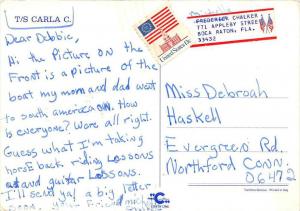 T/S CARLA C.
Dear Debbie,
Hi the Picture ON the
Front is a Picture of the
boat my mom and dad went
to south america ON. How
is everyone? Were all right.
Guess what I'm taking
horsE back riding Lossons
and guitar Lossons.
I'll send ya! a big letter
soon.
Friend
United States 13c
FREDERICK CHALKER
771 APPLEBY STREET
BOCA RATON, FLA.
33432
Miss Debroah
Haskell
Evergreen Rd.
Northford Conn.
06472